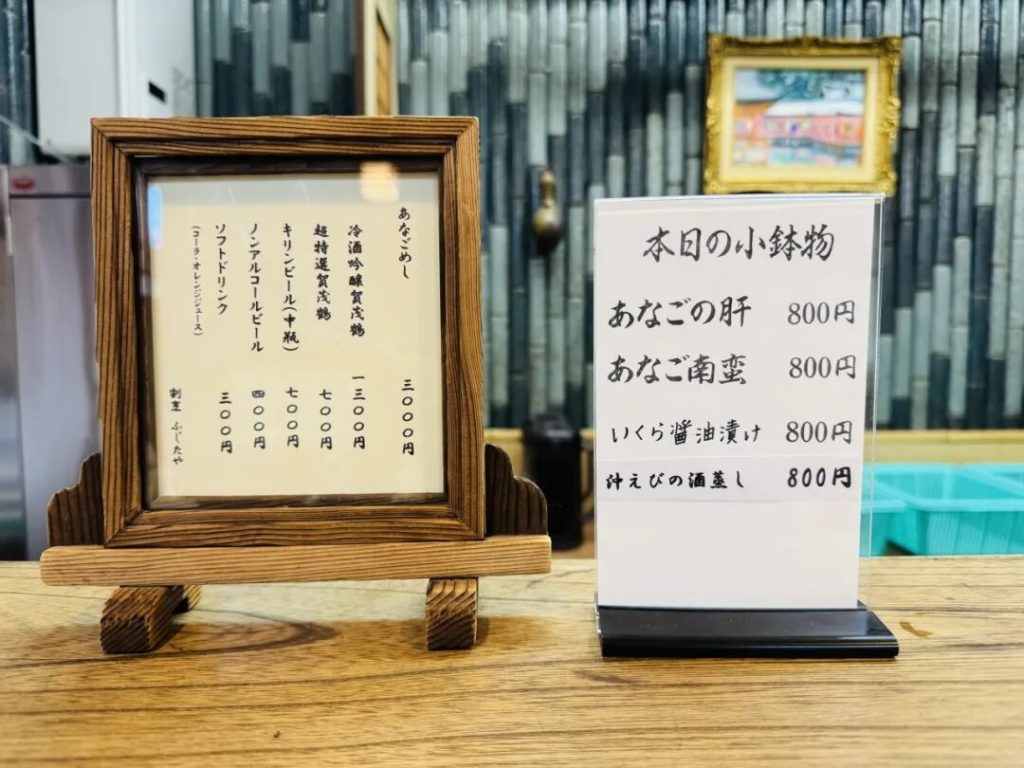 あなごめし 三〇〇〇円
冷酒吟醸賀茂鶴 一三〇〇円
超特選賀茂鶴 七〇〇円
キリンビール(中瓶) 七〇〇円
ノンアルコールビール 四〇〇円
ソフトドリンク 三〇〇円
(コーラ・オレンジジュース)
割烹 ふじたや
本日の小鉢物
あなごの肝 800円
あなご南蛮 800円
いくら醤油漬け 800円
沖えびの酒蒸し 800円